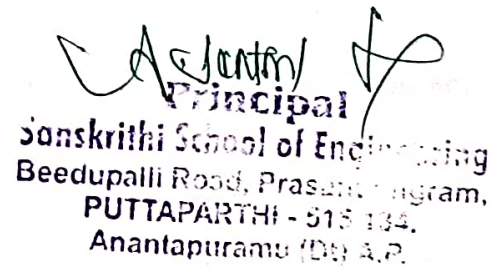 Principal
Sanskrithi School of Engineering
Beedupalli Road, Prasanthigram,
PUTTAPARTHI - 515 134.
Anantapuramu (Dt) A.P.